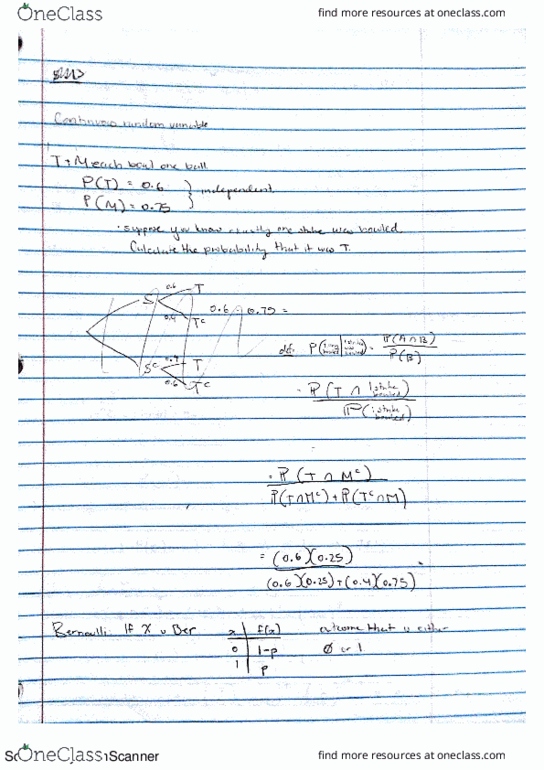 OneClass find more resources at oneclass.com
Continuous random variable
T + M each bowl one ball
P(T) = 0.6 } independent
P(M) = 0.75
· suppose you know exactly one strike was bowled.
Calculate the probability that it was T.
0.6 T
S
0.4 Tc
0.6 0.75 =
T
Sc
0.6 Tc
P( | ) = P(A∩B)
P(B)
= P(T ∩ 1 strike bowled)
P(1 strike bowled)
= P(T ∩ Mc)
P(T∩Mc) + P(Tc∩M)
= (0.6)(0.25)
(0.6)(0.25) + (0.4)(0.75)
Bernoulli: If X ~ Ber x f(x) outcome that is either
0 1-p 0 or 1
1 p
OneClass Scanner find more resources at oneclass.com